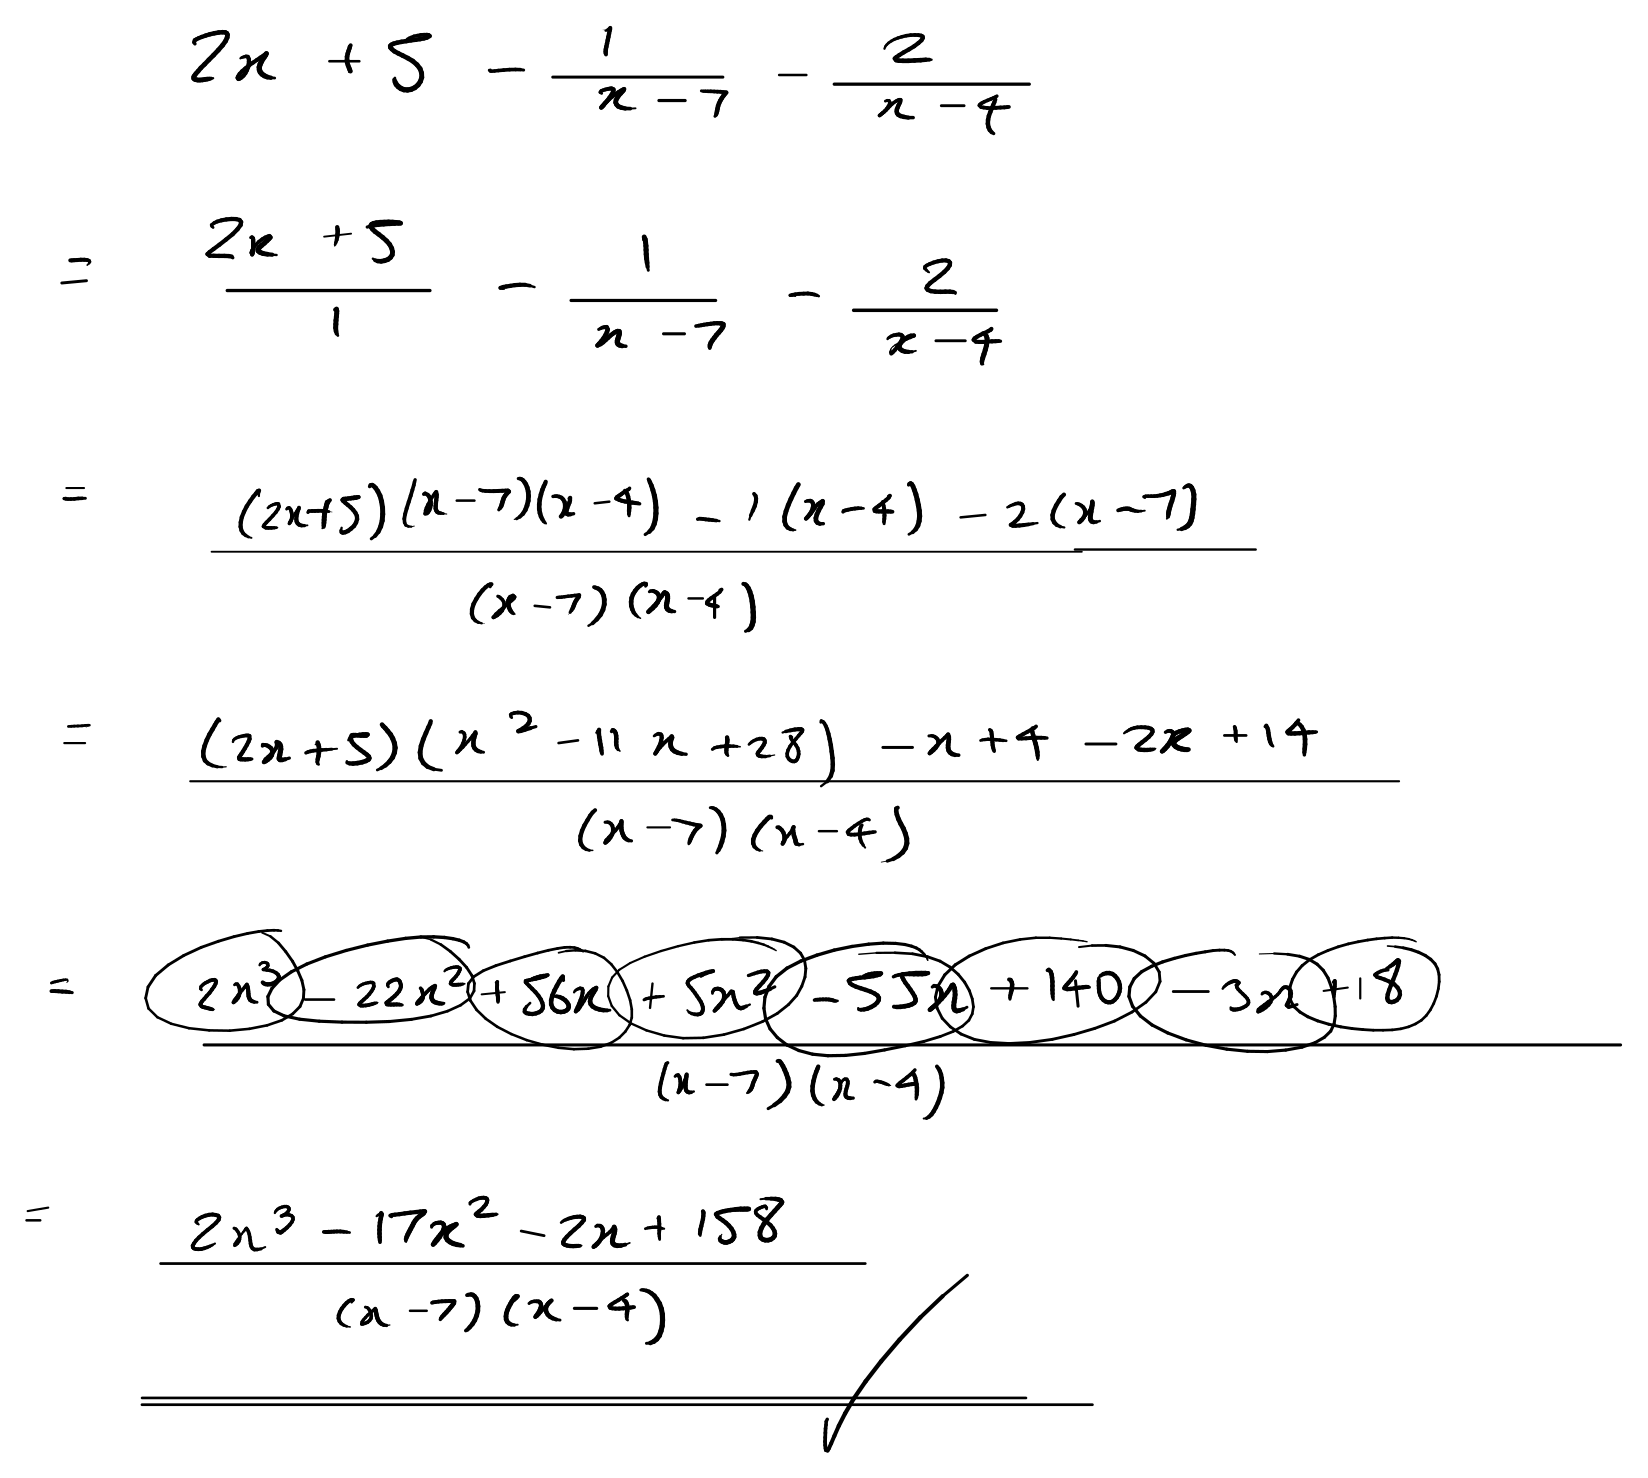 2x + 5 - 1/(x - 7) - 2/(x - 4)
= (2x + 5)/1 - 1/(x - 7) - 2/(x - 4)
= ((2x+5)(x-7)(x-4) - 1(x-4) - 2(x-7))/((x-7)(x-4))
= ((2x+5)(x² - 11x + 28) - x + 4 - 2x + 14)/((x-7)(x-4))
= (2x³ - 22x² + 56x + 5x² - 55x + 140 - 3x + 18)/((x-7)(x-4))
= (2x³ - 17x² - 2x + 158)/((x-7)(x-4))